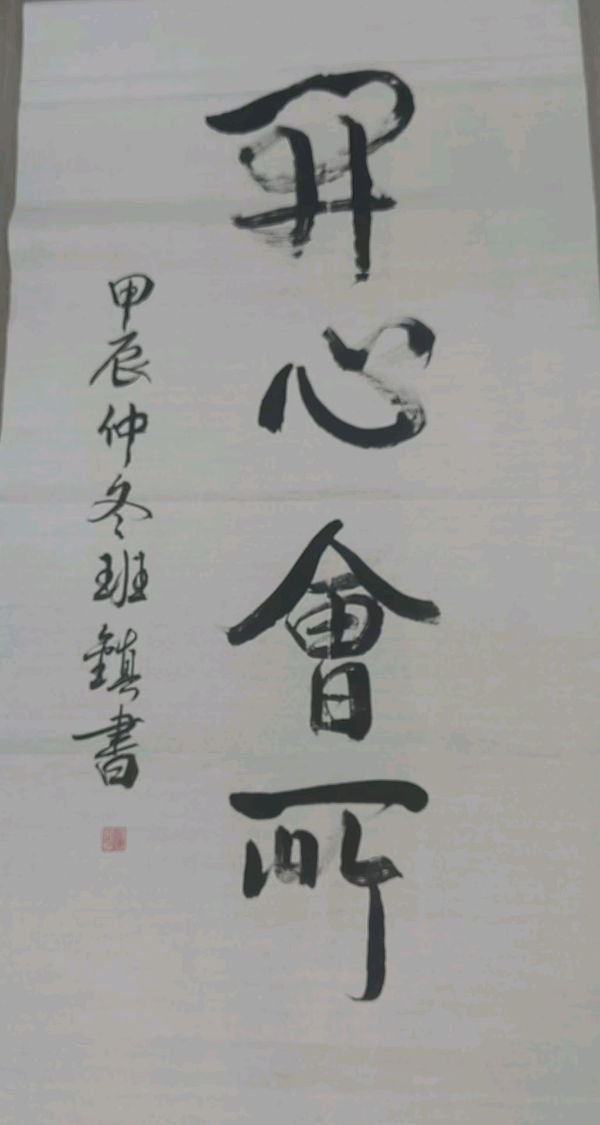 開心會所
甲辰仲冬班鎮書